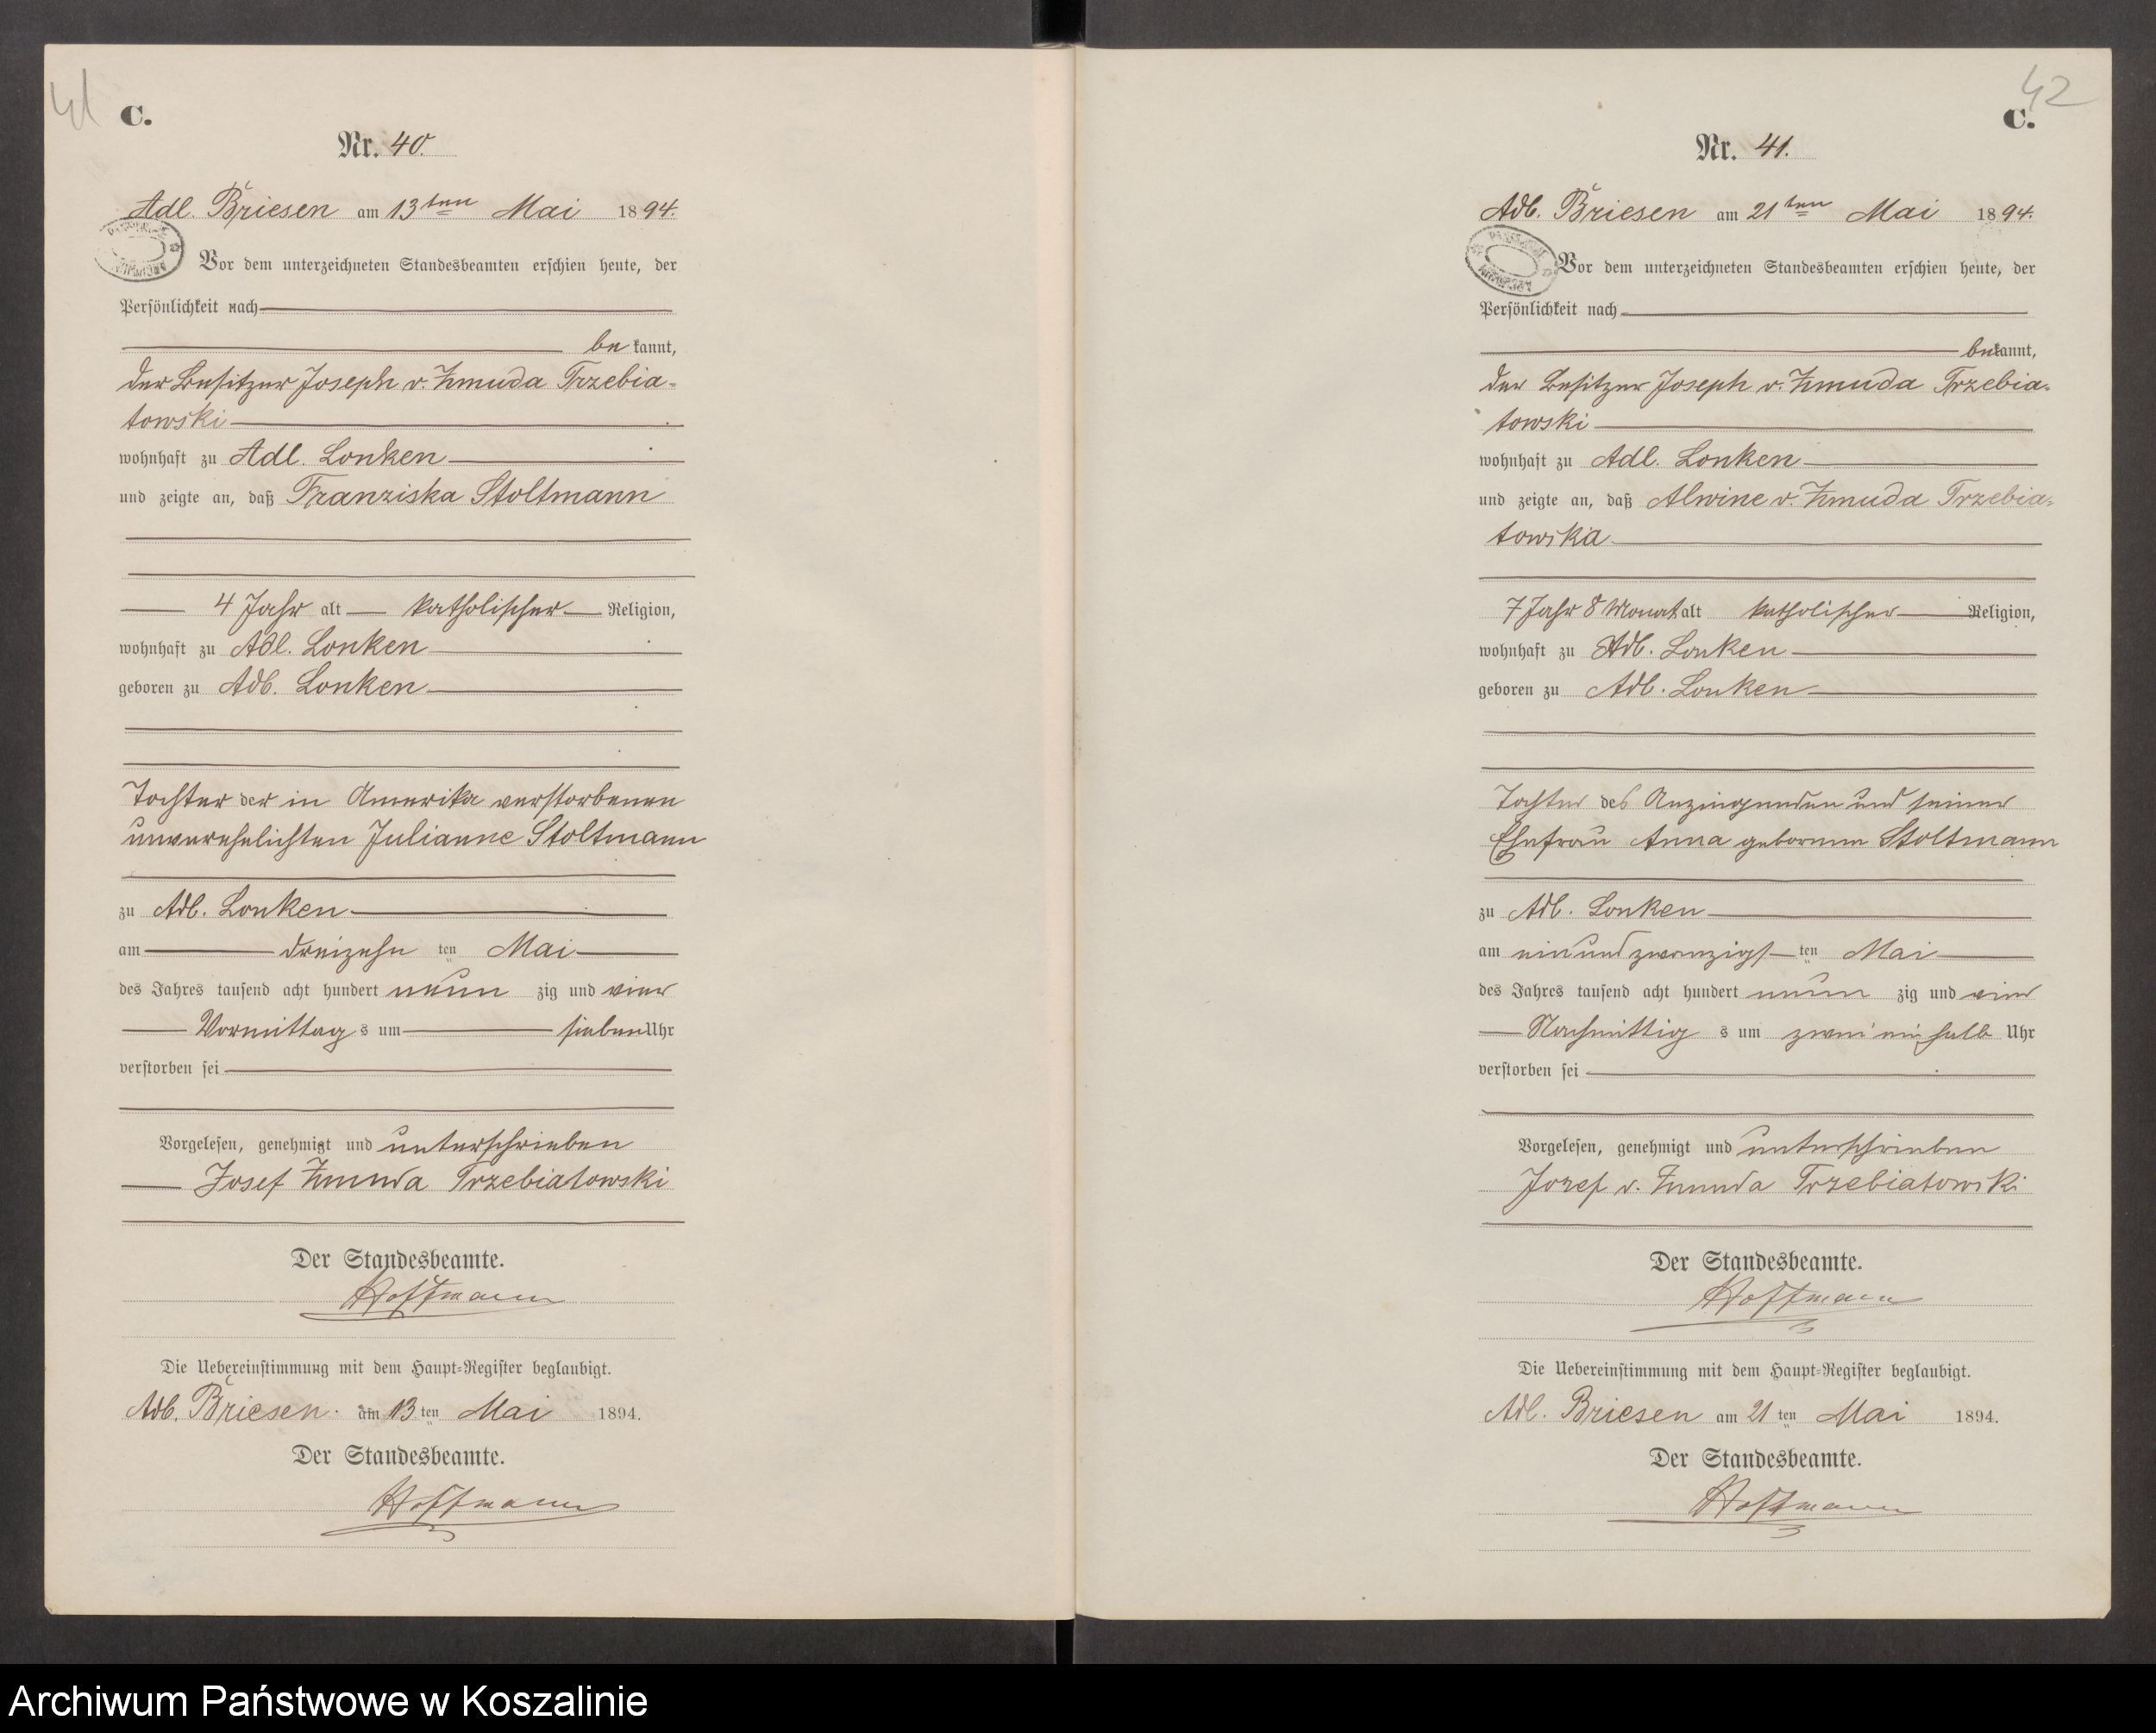 41
C.
Nr. 40.
Adl. Briesen am 13ten Mai 1894.
Vor dem unterzeichneten Standesbeamten erschien heute, der
Persönlichkeit nach
bekannt,
der Besitzer Joseph v. Zmuda Trzebia-
towski
wohnhaft zu Adl. Lonken
und zeigte an, daß Franziska Stoltmann
4 Jahr alt katholischer Religion,
wohnhaft zu Adl. Lonken
geboren zu Adl. Lonken
Tochter der in Amerika verstorbenen
unverehelichten Julianne Stoltmann
zu Adl. Lonken
am dreizehn ten Mai
des Jahres tausend acht hundert neun zig und vier
Vormittag s um sieben Uhr
verstorben sei
Vorgelesen, genehmigt und unterschrieben
Josef Zmuda Trzebiatowski
Der Standesbeamte.
Hoffmann
Die Uebereinstimmung mit dem Haupt-Register beglaubigt.
Adl. Briesen am 13 ten Mai 1894.
Der Standesbeamte.
Hoffmann
42
C.
Nr. 41.
Adl. Briesen am 21ten Mai 1894.
Vor dem unterzeichneten Standesbeamten erschien heute, der
Persönlichkeit nach
bekannt,
der Besitzer Joseph v. Zmuda Trzebia-
towski
wohnhaft zu Adl. Lonken
und zeigte an, daß Alwine v. Zmuda Trzebia-
towska
7 Jahr 8 Monat alt katholischer Religion,
wohnhaft zu Adl. Lonken
geboren zu Adl. Lonken
Tochter des Anzeigenden und seiner
Ehefrau Anna geborenen Stoltmann
zu Adl. Lonken
am einundzwanzigs ten Mai
des Jahres tausend acht hundert neun zig und vier
Nachmittag s um zwei ein halb Uhr
verstorben sei
Vorgelesen, genehmigt und unterschrieben
Josef v. Zmuda Trzebiatowski
Der Standesbeamte.
Hoffmann
Die Uebereinstimmung mit dem Haupt-Register beglaubigt.
Adl. Briesen am 21 ten Mai 1894.
Der Standesbeamte.
Hoffmann
Archiwum Państwowe w Koszalinie